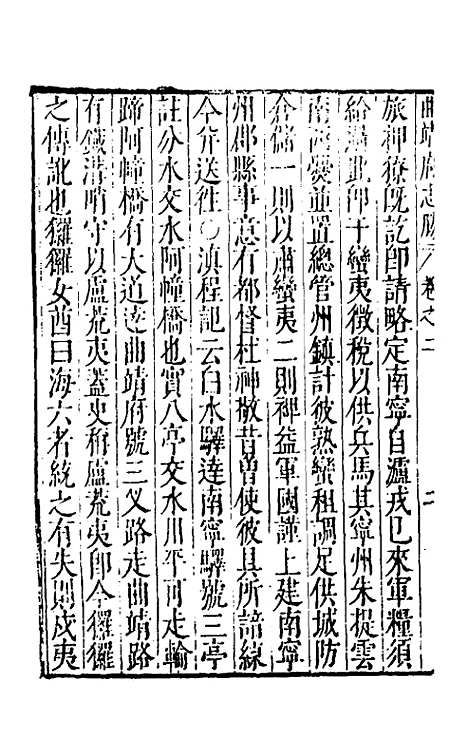 曲靖府志勝 卷之二 二
旅神療既訖即請略定南寧自瀘戎已來軍糧須
給過此即于蠻夷徵稅以供兵馬其寧州朱提雲
南西爨並置總管州鎮計彼熟蠻租調足供城防
倉儲一則以肅蠻夷二則裨益軍國謹上建南寧
州郡縣事意有都督杜神敬昔曾使彼具所諳練
今并送往○滇程記云白水驛達南寧驛號三亭
註分水交水阿幢橋也實八亭交水川平可走輪
蹄阿幢橋有大道達曲靖府號三叉路走曲靖路
有鐵溝哨守以廬荒夷蓋史稱廬荒夷即今玀玀
之傳訛也玀玀女酋曰海六者統之有失則戍夷